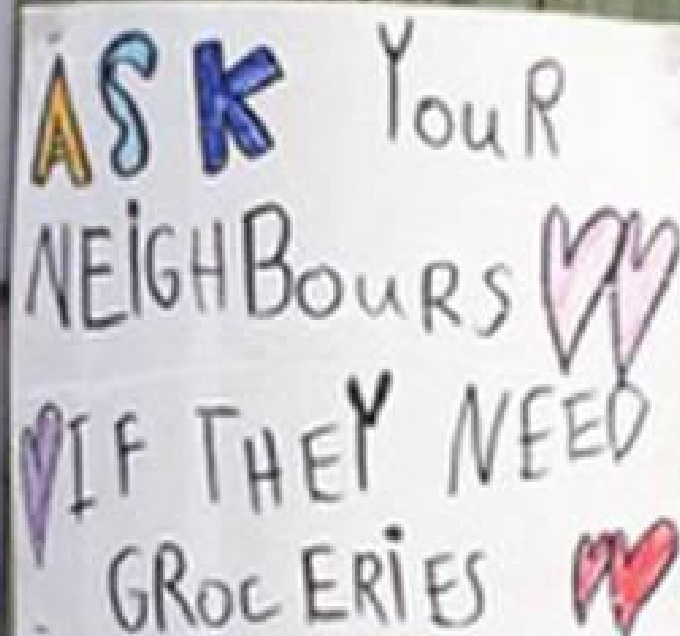 ASK YouR
NEiGHBouRS
IF THEY NEED
GRoc ERiES